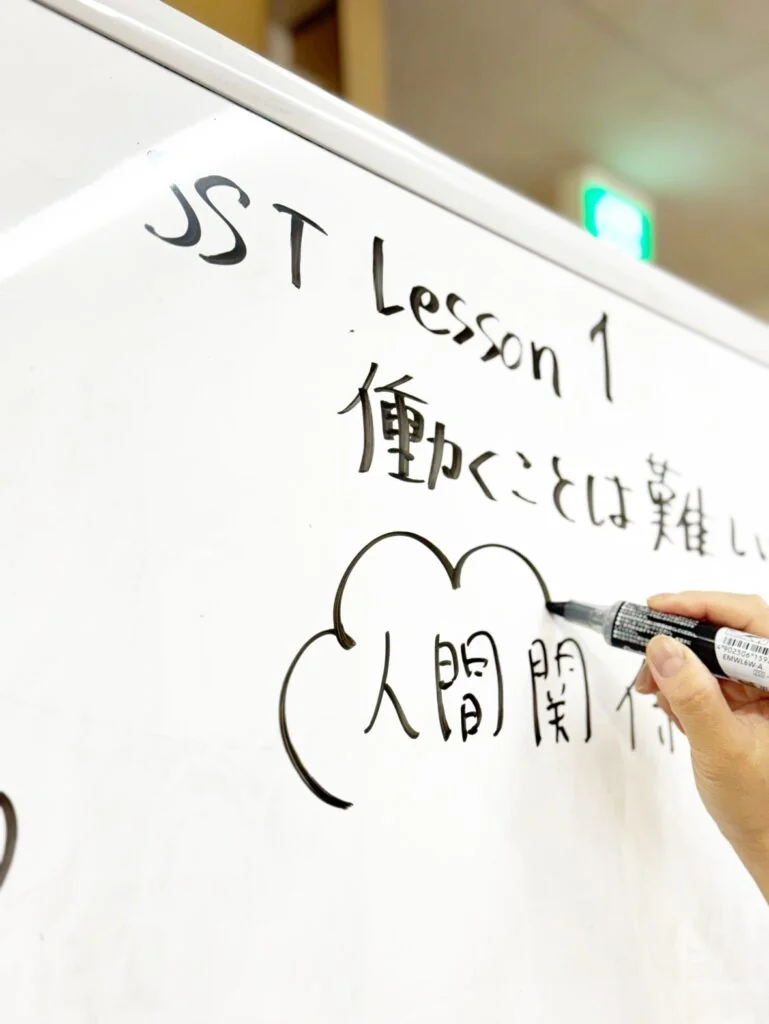 JST Lesson 1
働くことは難しい
人間関係
EMWL6W-A